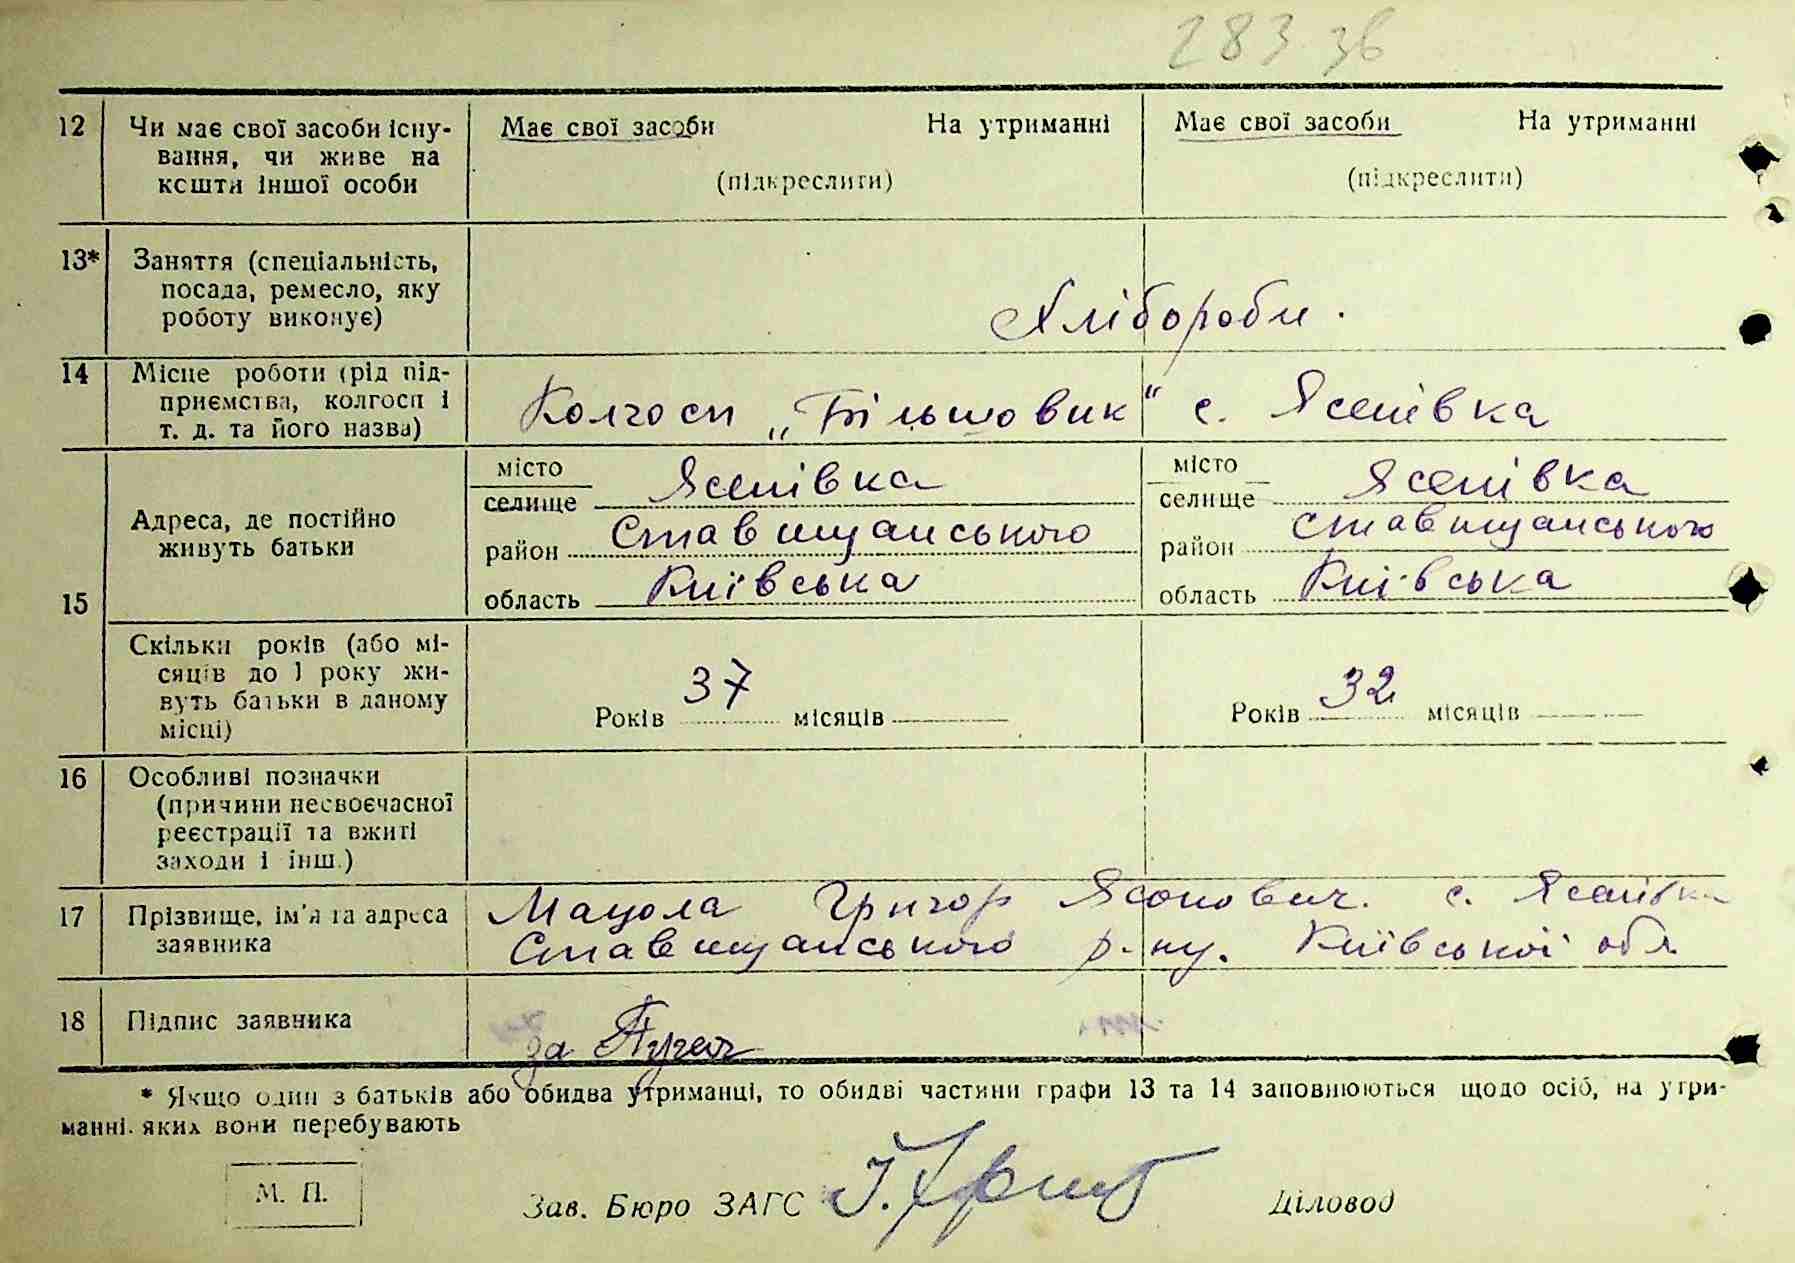 283 зв
12 Чи має свої засоби існу- Має свої засоби На утриманні Має свої засоби На утриманні
вання, чи живе на
кошти іншої особи (підкреслити) (підкреслити)
13* Заняття (спеціальність,
посада, ремесло, яку
роботу виконує) Хлібороби.
14 Місце роботи (рід під-
приємства, колгосп і Колгосп „Більшовик“ с. Ясенівка
т. д. та його назва)
15 Адреса, де постійно
живуть батьки
місто Ясенівка місто Ясенівка
селище селище
район Ставищанського район Ставищанського
область Київська область Київська
Скільки років (або мі-
сяців до 1 року жи-
вуть батьки в даному
місці) Років 37 місяців — Років 32 місяців —
16 Особливі позначки
(причини несвоєчасної
реєстрації та вжиті
заходи і інш.)
17 Прізвище, ім'я та адреса Мацола Григор Ясонович. с. Ясенівка
заявника Ставищанського р-ну. Київської обл
18 Підпис заявника за
* Якщо один з батьків або обидва утриманці, то обидві частини графи 13 та 14 заповнюються щодо осіб, на утри-
манні яких вони перебувають
М. П. Зав. Бюро ЗАГС Діловод